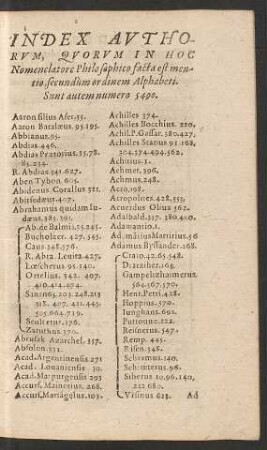 INDEX AVTHO-
RVM, QVORVM IN HOC
Nomenclatore Philosophico facta est men-
tio, secundùm ordinem Alphabeti.
Sunt autem numero 5490.
Aaron filius Aser.35.
Aaron Batalæus.95.195.
Abbianus.95.
Abdias.446.
Abdias Prætorius.35.78.
85.234.
R. Abdias.341.627.
Aben Tybon.605.
Abidenus Corallus 381.
Abitsedæus.407.
Abrahamus quidam Iu-
dæus.385.391.
Ab.de Balmis.25.245.
Bucholtzer.427.545.
Caus.348.576.
R. Abra. Leuita.427.
Lœscherus.95.140.
Ortelius.342.407.
410.414.474.
Sanctius.203.248.213
318.407.421.445.
505.664.719.
Scultetus.176.
Zurithus.370.
Abrusek Azarchel.357.
Absolon.331.
Acad. Argentinensis 271
Acad. Louaniensis 30.
Acad. Marpurgensis 295
Accurs. Mainerius.268.
Accurs. Mariãgelus.103.
Achilles 374.
Achilles Bocchius.220.
Achil.P.Gassar.380.427.
Achilles Statius 91.168.
204.374.494.562.
Achmet.396.
Achmus.248.
Acro.198.
Acropolites.428.553.
Acturdus Olius 562.
Adalbald.317.380.410.
Adamantio.1.
Ad.mãtius Martirius 56
Adamus Byssander.168.
Crato.42.65.548.
Dratziher.163.
Gampeltzhaimerus.
564.567.570.
Hent.Petri.428.
Hoppius.570.
Iunghans.691.
Puteonus.222.
Reisnerus.547.
Remp.445.
Risen.348.
Schramus.140.
Schinterus.96.
Siberus 10.96.140,
222.680.
Vrsinus 623.
Ad